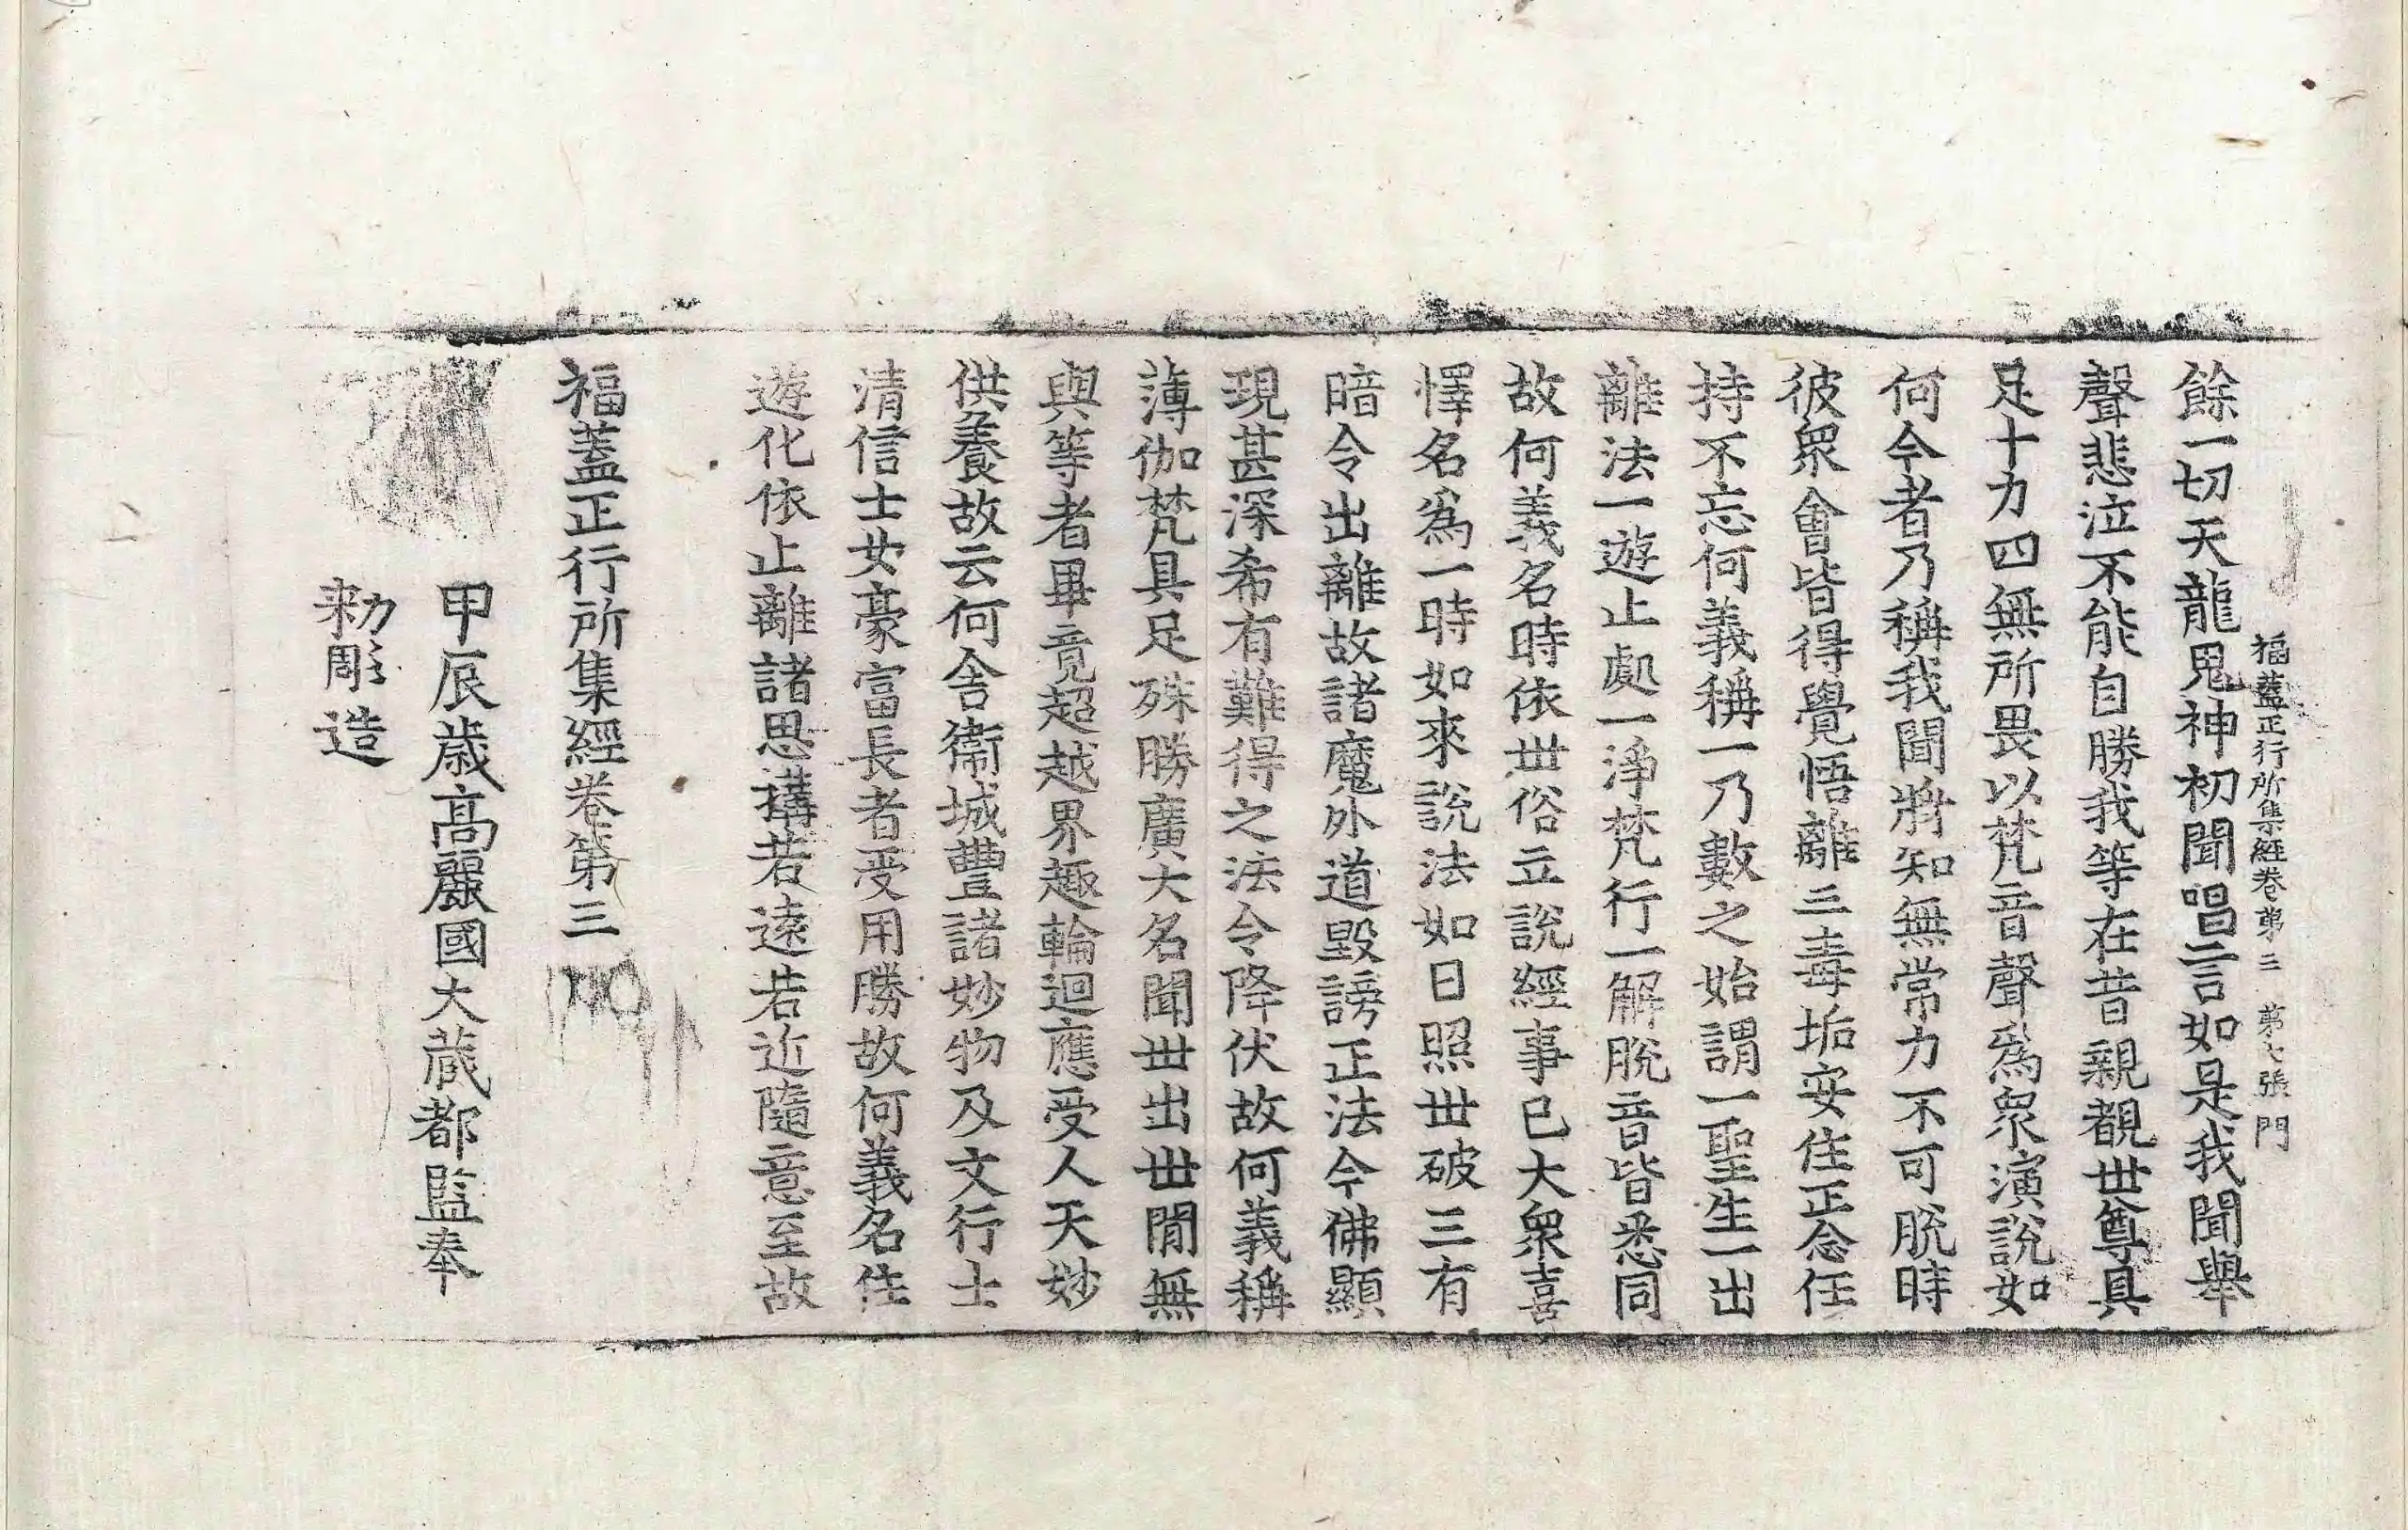 福蓋正行所集經卷第三　第七張　門
餘一切天龍鬼神初聞唱言如是我聞舉
聲悲泣不能自勝我等在昔親覩世尊具
足十力四無所畏以梵音聲爲衆演說如
何今者乃稱我聞將知無常力不可脫時
彼衆會皆得覺悟離三毒垢安住正念任
持不忘何義稱一乃數之始謂一聖生一出
離法一遊止處一淨梵行一解脫音皆悉同
故何義名時依世俗立說經事已大衆喜
懌名爲一時如來說法如日照世破三有
暗令出離故諸魔外道毀謗正法今佛顯
現甚深希有難得之法令降伏故何義稱
薄伽梵具足殊勝廣大名聞世出世閒無
與等者畢竟超越界趣輪迴應受人天妙
供養故云何舍衞城豐諸妙物及文行士
清信士女豪富長者受用勝故何義名住
遊化依止離諸思搆若遠若近隨意至故
福蓋正行所集經卷第三
甲辰歲高麗國大藏都監奉
勅彫造